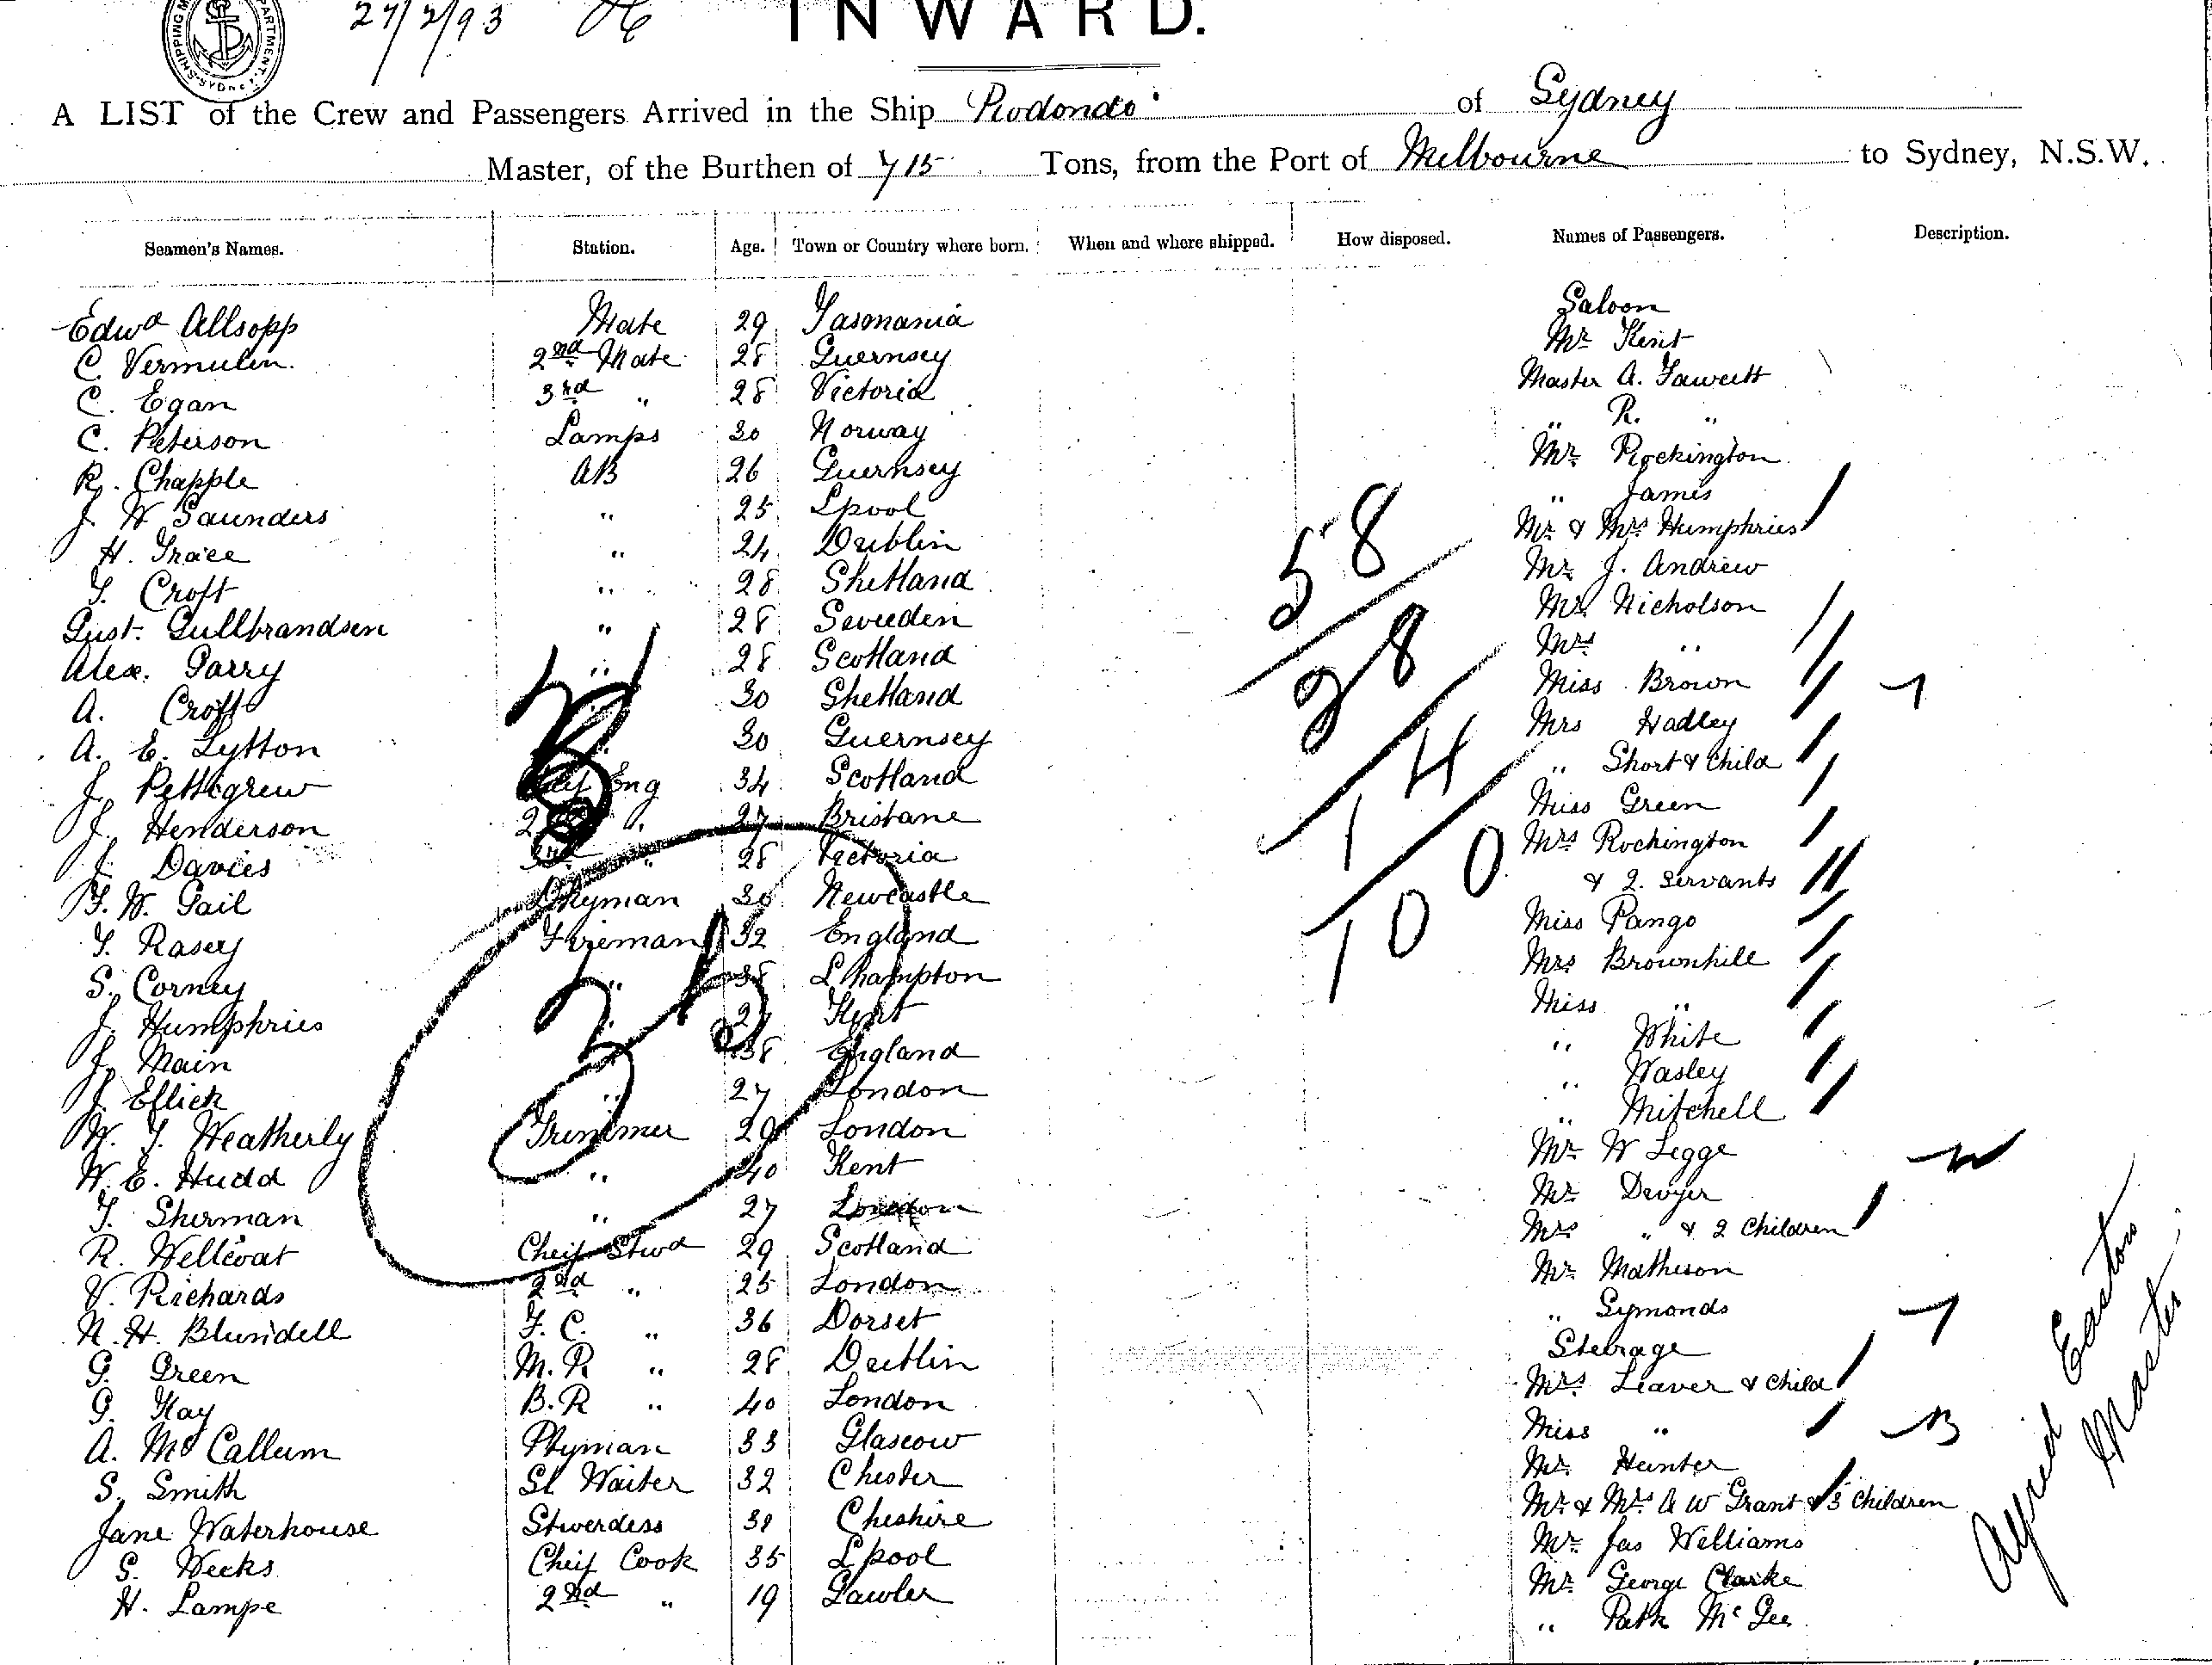 27/2/93
INWARD.
A LIST of the Crew and Passengers Arrived in the Ship Rodondo of Sydney
Master, of the Burthen of 715 Tons, from the Port of Melbourne to Sydney, N.S.W.
Seamen's Names. Station. Age. Town or Country where born. When and where shipped. How disposed. Names of Passengers. Description.
Saloon
Edwd Allsopp Mate 29 Tasmania Mr Kent
C. Vermulin 2nd Mate 28 Guernsey Master A. Fawcett
C. Egan 3rd " 28 Victoria " R. "
C. Peterson Lamps 30 Norway Mr Rockington
R. Chapple AB 26 Guernsey " James
J. W Saunders " 25 Lpool Mr & Mrs Humphries
H. Grace " 24 Dublin Mr J. Andrew
T. Croft " 28 Shetland Mr Nicholson
Gust. Gullbrandsen " 28 Sweeden Mrs "
Alex. Parry " 28 Scotland Miss Brown
A. Croft 30 Shetland Mrs Hadley
A. E. Lytton 30 Guernsey " Short & Child
J. Pettigrew Eng 34 Scotland Miss Green
J. Henderson 2 " 27 Brisbane Mrs Rockington
J. Davies 3rd " 28 Victoria & 2 Servants
T. W. Pail 30 Newcastle Miss Pango
T. Rasey Fireman 32 England Mrs Brownhill
S. Corney " 38 L'hampton Miss "
J. Humphries " Kent " White
J. Main 38 England " Wasley
J. Ellick " 27 London " Mitchell
W. T. Weatherly Trimmer London Mr W Legge
W. E. Hudd " 40 Kent Mr Dwyer
T. Sherman " 27 London Mrs " & 2 Children
R. Wellcoat Cheif Stwd 29 Scotland Mr Matheson
V. Richards 2nd " 25 London " Symonds
N. H. Blundell F. C. " 36 Dorset Steerage
G. Green M. R " 28 Dublin Mrs Leaver & Child
G. Hay B. R " 40 London Miss "
A. McCallum Ptyman 33 Glascow Mr Hunter
S. Smith St Waiter 32 Chester Mr & Mrs A W Grant & 3 Children
Jane Waterhouse Stwerdess 38 Cheshire Mr Jas Williams
S. Weeks Cheif Cook 35 Lpool Mr George Clarke
H. Lampe 2nd " 19 Gawler " Patk McGee
58
28
14
100
Easton
Master